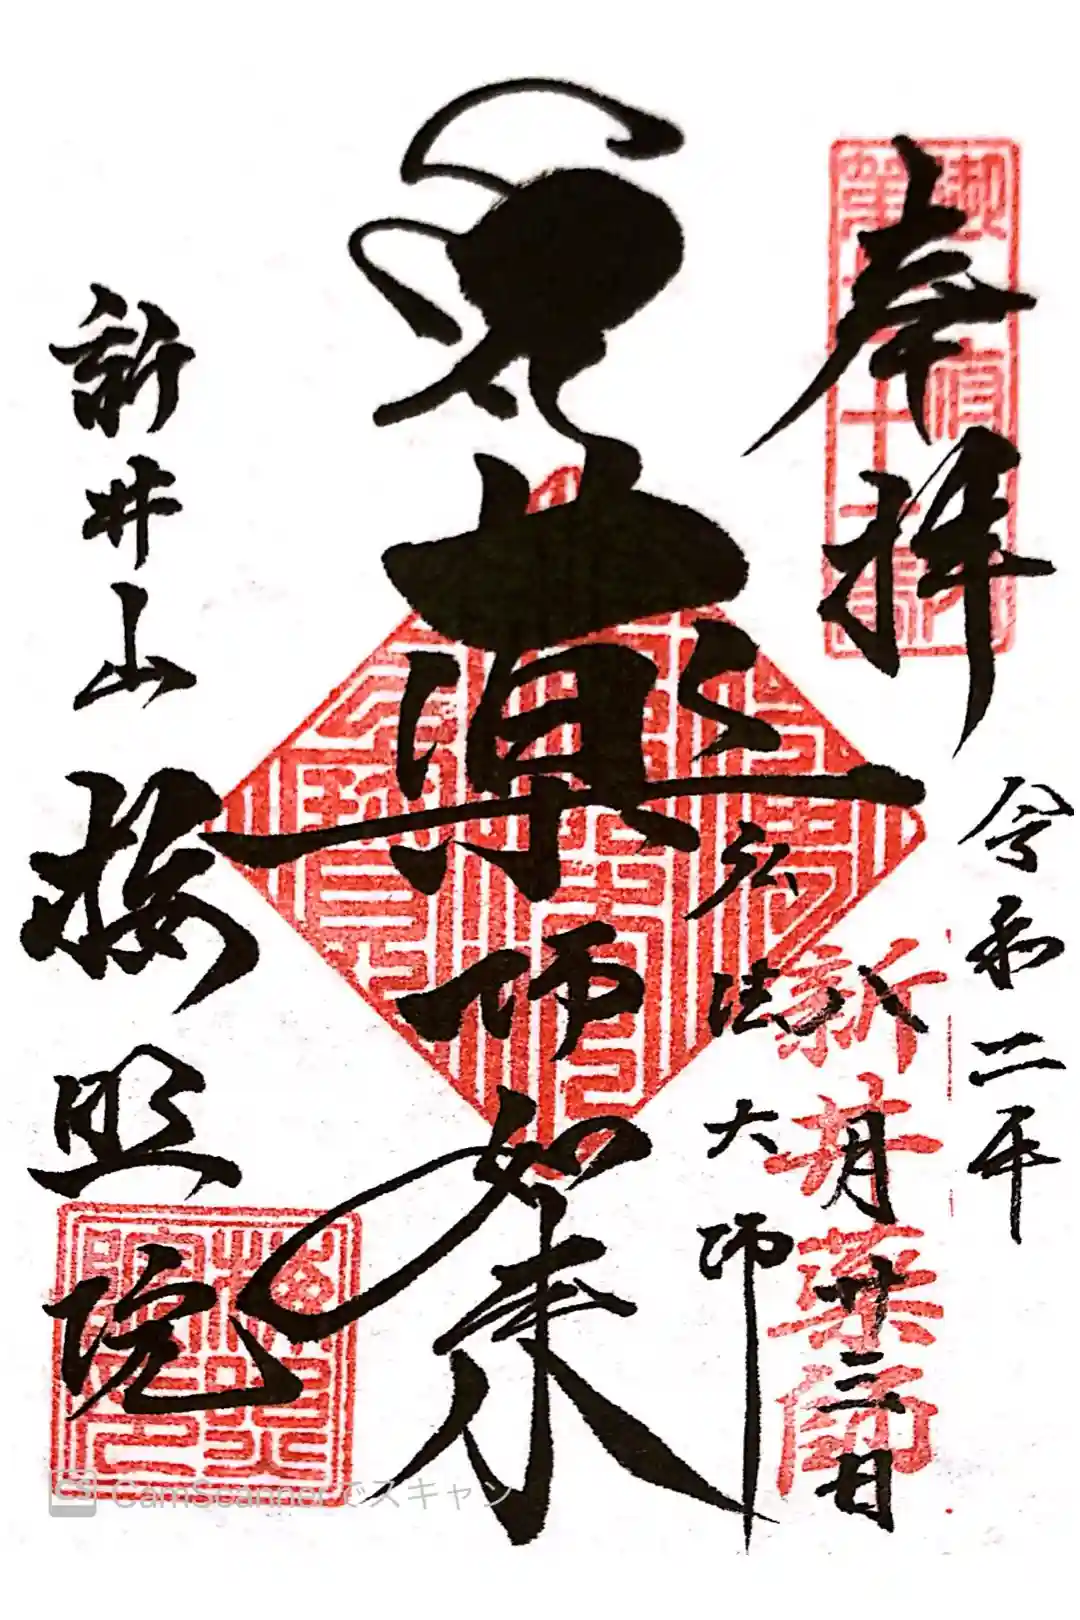 奉拝
令和二年
八月廿三日
新井薬師
弘法大師
薬師如来
新井山
梅照院
CamScannerでスキャン